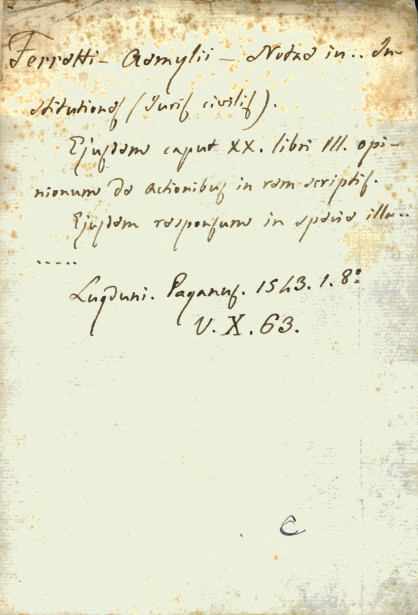 Ferretti - Aemylii - Notae in .. In-
stitutiones (Juris civilis).
Ejusdem caput XX. libri III. opi-
nionum de actionibus in rem scriptis.
Ejusdem responsum in specie illa ..
.....
Lugduni. Paganus. 1543. 1. 8º
V. X. 63.
C